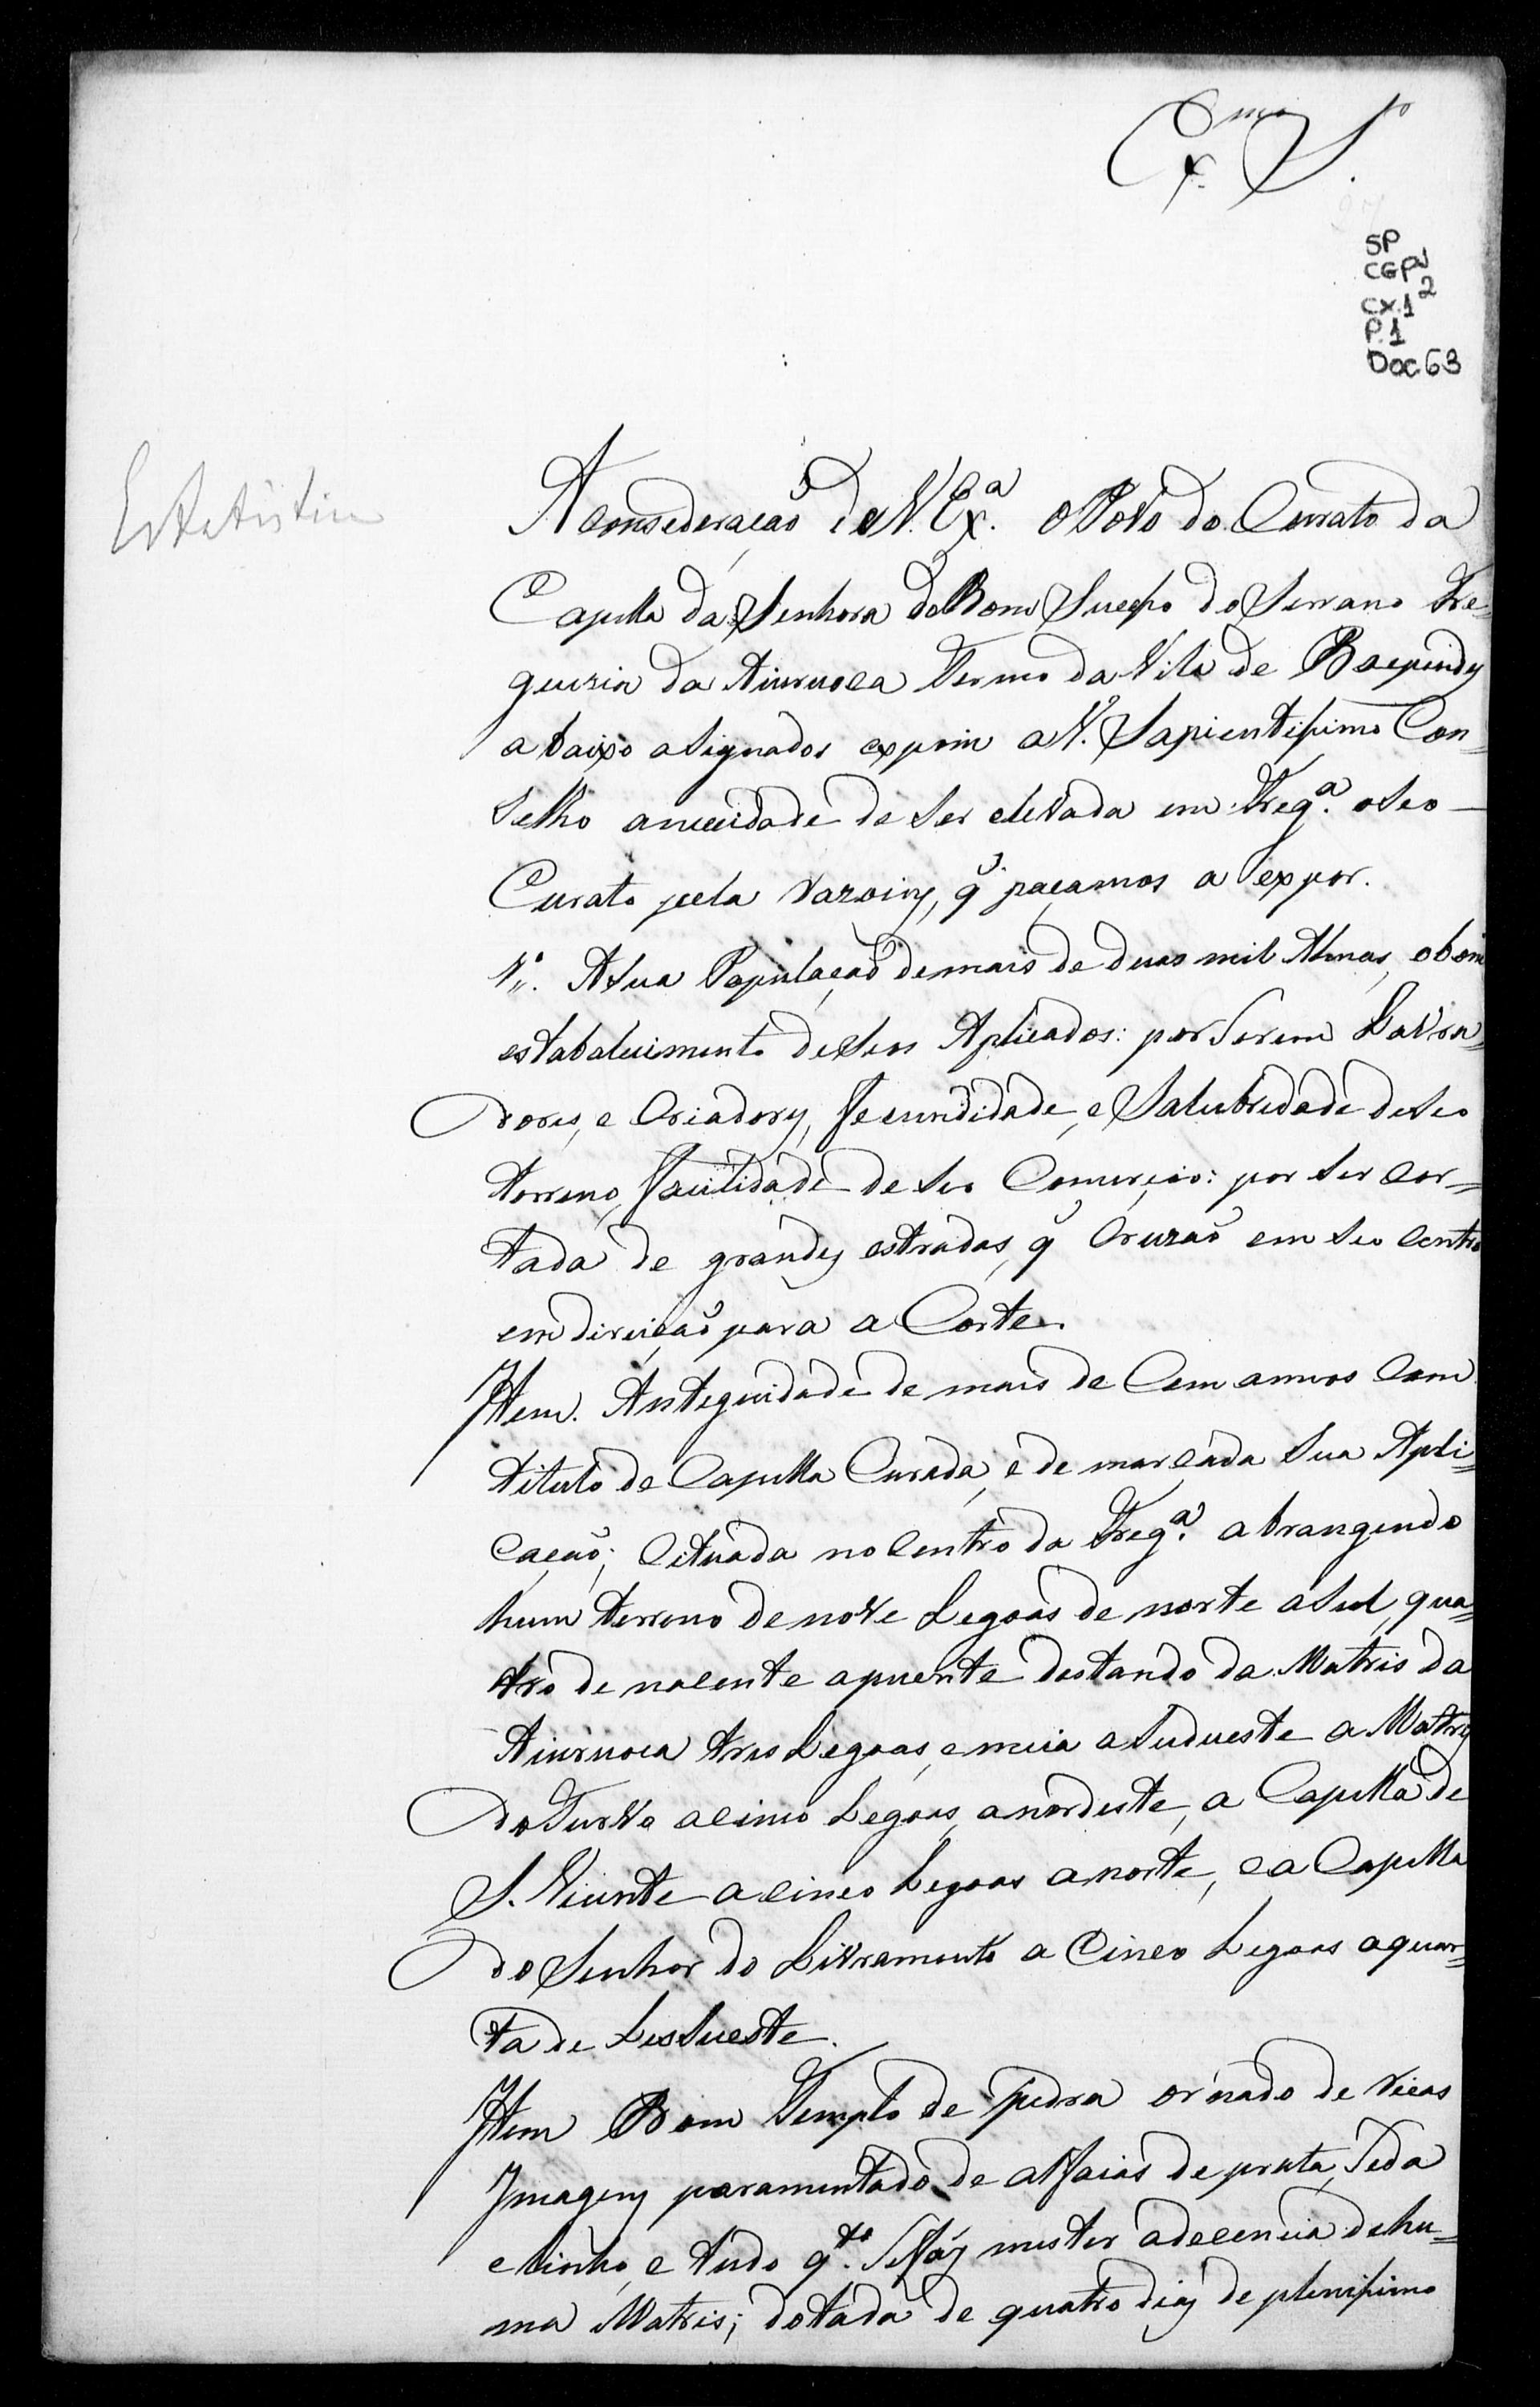 Exmo Sr.
SP
CGP1
CX.12
P.1
Doc.63
Estatistica
A consederação de V. Exª. o Povo do Curato da
Capella da Senhora do Bom Sucesso do Serrano Fre=
guezia da Aiuruoca Termo da Vila de Baependy
abaixo asignados expoim a V. Sapientissimo Con=
selho a necidade de ser elevada em Fregª. o seo
Curato pela razoins, q̃ paçamos a expor.
1º. A sua População de mais de duas mil Almas, o bom
estabalecimento de seos Aplicados: por serem Lavra=
dores, e Criadores, fecundidade, e Salubredade de seo
terreno, facilidade de seo Comerçio: por ser cor=
tada de grandes estradas, q̃ cruzaõ em seo centro
em direição para a Corte.
Item. Anteguidade de mais de Cem annos com
titulo de Capella Curada, e de marcada sua Apli=
cação; citúada no centro da Fregª. abrangendo
hum terreno de nove Legoas de norte a sul, qua=
tro de nacente a puente destando da Matris da
Aiuruoca tres Legoas, e meia a sudueste a Matris
do Turvo a cinco Legoas, a nordeste, a Capella de
S. Vicente a cinco Legoas a norte, e a Capella
do Senhor do Livramento a Cinco Legoas a quar=
ta de Lessueste.
Item Bom Templo de pedra ornado de ricas
Imagens paramentado de alfaias de prata, seda
e linho, e tudo qto. se fás mister a decencia de hu=
ma Matris; dotada de quatro dias de plenissimo